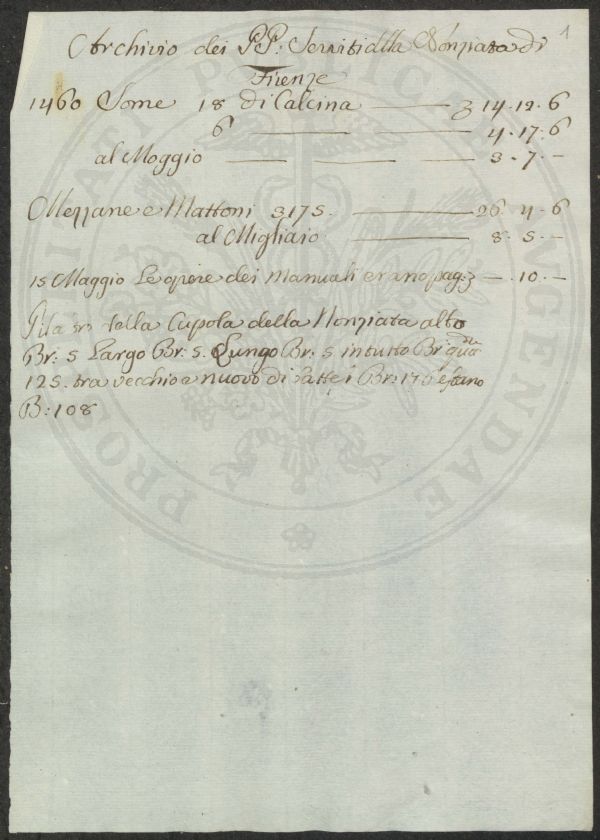 1
Archivio dei PP: Serviti della Nonziata di
Firenze
1460 Some 18 di Calcina — 3 14.12.6
6 — — 4.17.6
al Moggio — — — 3.7.—
Mezzane e Mattoni 3175. — 26 4.6
al Migliaio — 8.5.—
15 Maggio Le opere dei Manuali erano pag. 3 —.10.—
della Cupola della Nonziata alto
Br: 5 Largo Br: 5. Lungo Br: 5 in tutto Br: qua
125. tra vecchio e nuovo di Br: 17
B: 108
PROSPERITATI PUBLICAE AUGENDAE